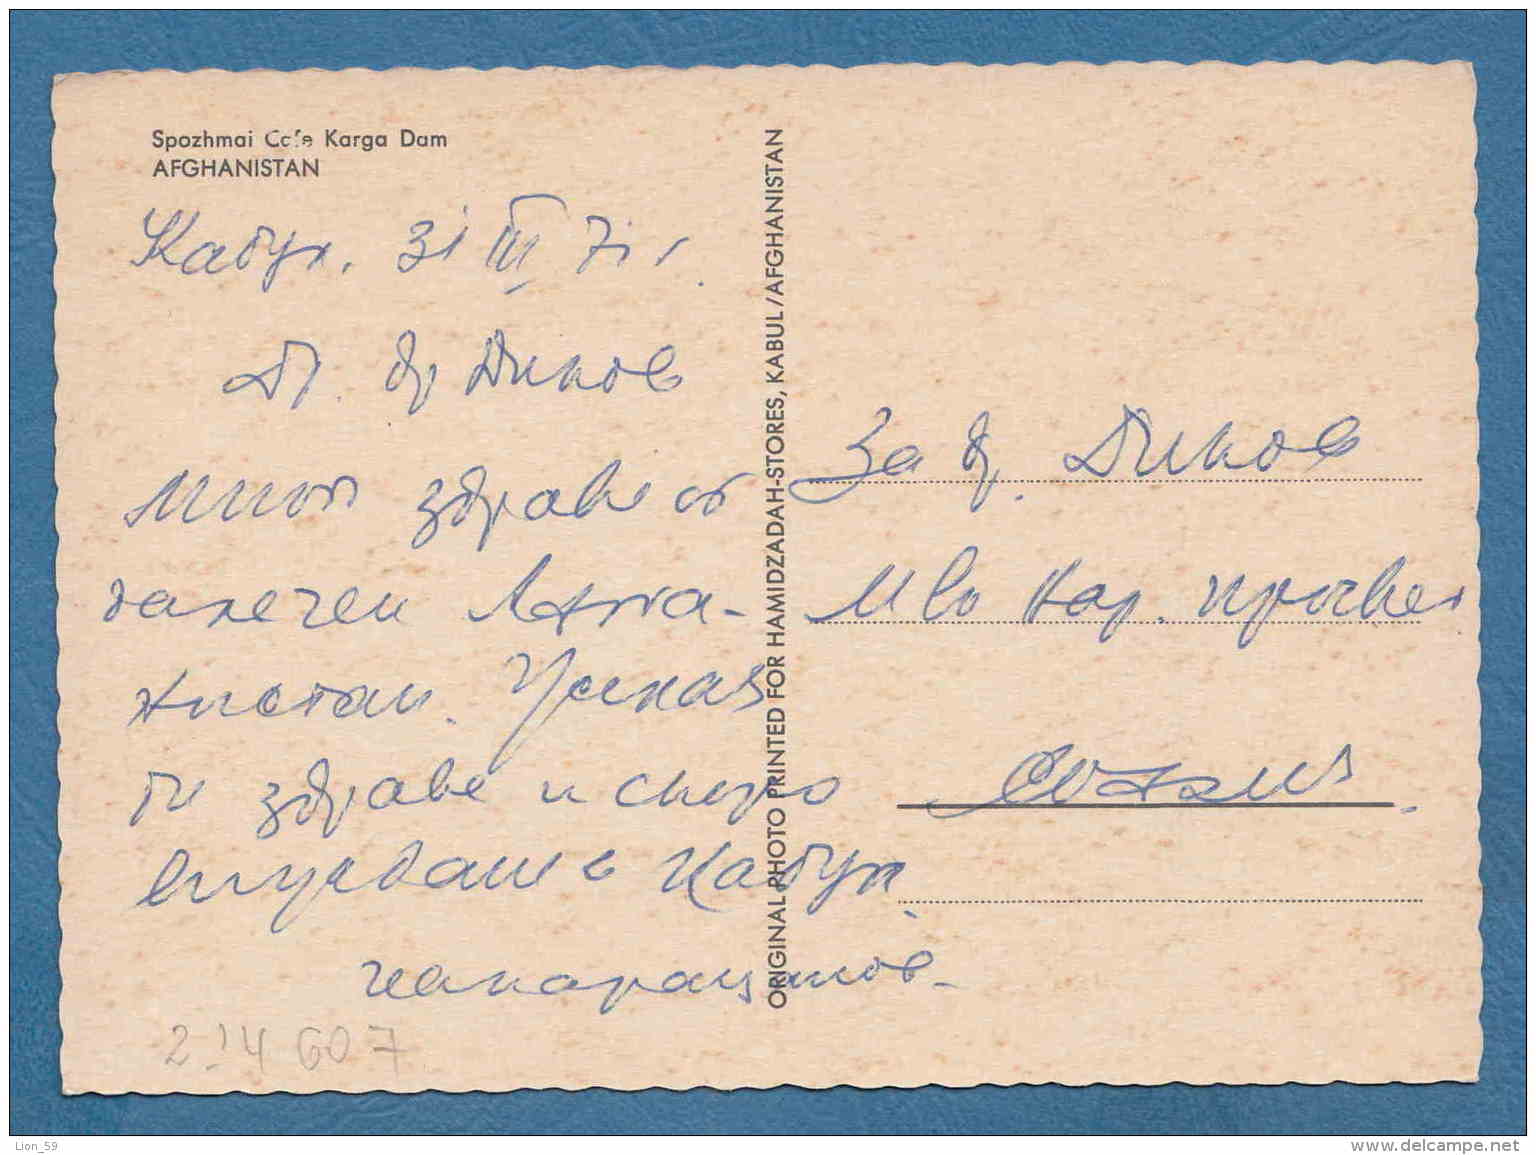 Spozhmai Cafe Karga Dam
AFGHANISTAN
Кабул. 31 III 71 г.
Др. др Динов
Много здраве от
далечен Афга-
нистан. Чакаме
ти здраве и скоро
в Кабул.
ORIGINAL PHOTO PRINTED FOR HAMIDZADAH-STORES, KABUL/AFGHANISTAN
За др. Динов
М-во Нар. просвет.
София.
214 607
Lion_59
www.delcampe.net